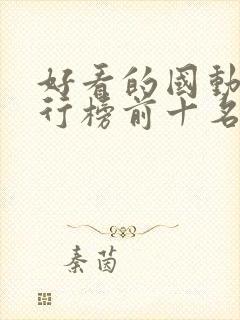 好看的國動
行榜前十名
秦茵